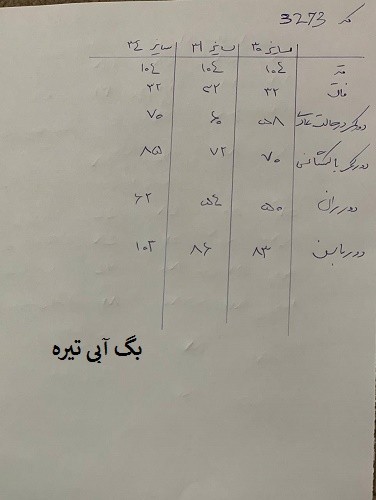 کد 3273
سایز ۳۰ سایز ۳۱ سایز ۳۴
قد ۱۰۴ ۱۰۴ ۱۰۴
فاق ۳۲ ۳۲ ۳۲
دور کمر در حالت عادی ۵۸ ۶۰ ۷۰
دور کمر با کشسانی ۷۰ ۷۲ ۸۵
دور ران ۵۰ ۵۴ ۶۲
دور باسن ۸۳ ۸۶ ۱۰۲
بگ آبی تیره